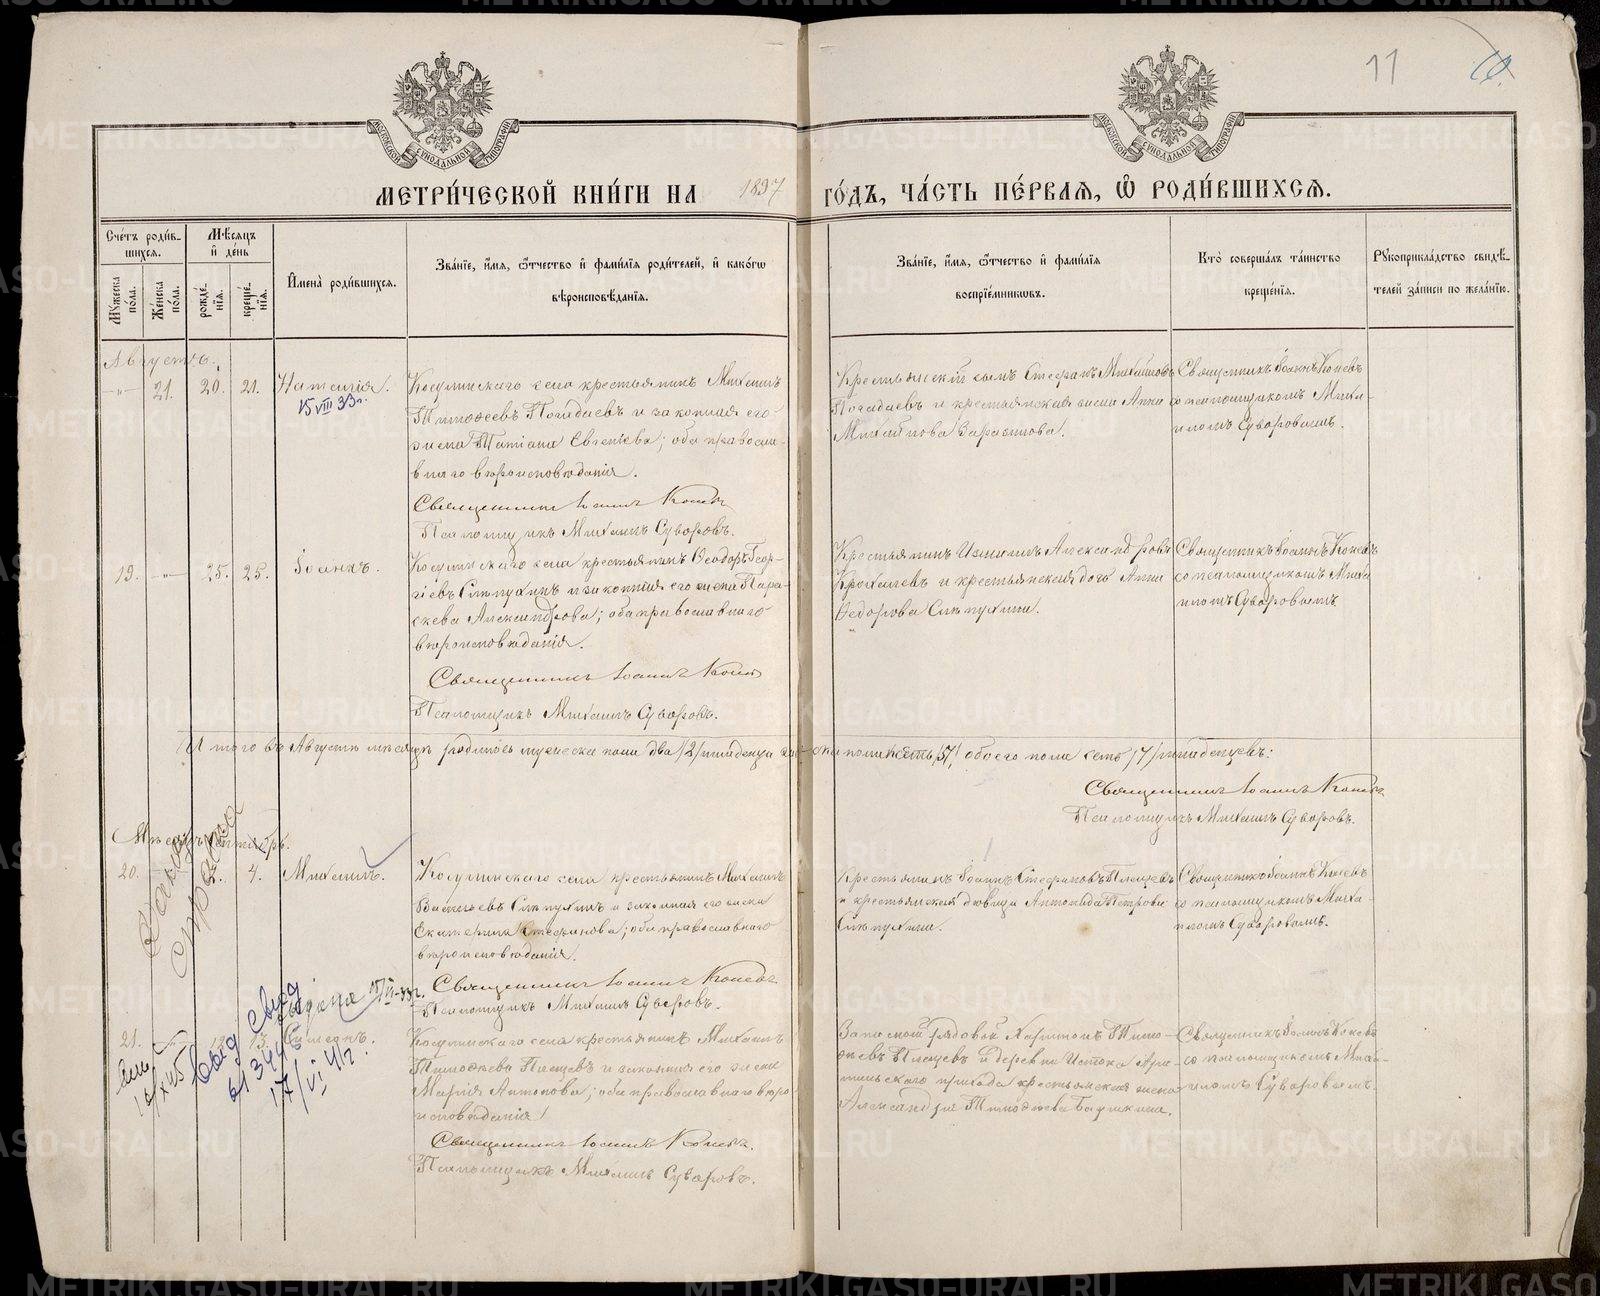 11
МОСКОВСКОЙ СУНОДАЛЬНОЙ ТИПОГРАФІИ
МОСКОВСКОЙ СУНОДАЛЬНОЙ ТИПОГРАФІИ
МЕТРИ́ЧЕСКОЙ КНИ́ГИ НА 1897 ГО́ДЪ, ЧА́СТЬ ПЕ́РВАЯ, Ѽ РОДИ́ВШИХСЯ.
Сче́тъ роди́в-
шихся.
Мѣсяцъ
и҆ де́нь
Му́жеска
по́ла.
Же́нска
по́ла.
рожде́-
нїя.
креще́-
нїя.
И҆мена̀ роди́вшихся.
Зва́нїе, и҆́мя, ѻ҆́тчество и҆ фами́лїя роди́телей, и҆ како́гѡ
вѣроисповѣ́данїя.
Зва́нїе, и҆́мя, ѻ҆́тчество и҆ фами́лїя
воспрїе́мникѡвъ.
Кто̀ соверша́лъ та́инство
креще́нїя.
Рꙋкоприкла́дство свидѣ́-
телей за́писи по жела́нїю.
Августъ.
-"- 21. 20. 21. Наталія.
15 VIII 33 г.
Косулинскаго села крестьянинъ Михаилъ
Тимофеевъ Погадаевъ и законная его
жена Татіана Евгеніева; оба православ-
наго вѣроисповѣданія.
Священникъ Іоаннъ Коневъ
Псаломщикъ Михаилъ Суворовъ.
Крестьянскій сынъ Стефанъ Михайловъ
Погадаевъ и крестьянская жена Анна
Михайлова
Священникъ Іоаннъ Коневъ
со псаломщикомъ Миха-
иломъ Суворовымъ.
19. -"- 25. 25. Іоаннъ.
Косулинскаго села крестьянинъ Ѳеодоръ Геор-
гіевъ Слѣпухинъ и законная его жена Пара-
скева Александрова; оба православнаго
вѣроисповѣданія.
Священникъ Іоаннъ Коневъ
Псаломщикъ Михаилъ Суворовъ.
Крестьянинъ Измаилъ Александровъ
и крестьянская дочь Анна
Ѳедорова Слѣпухина.
Священникъ Іоаннъ Коневъ
со псаломщикомъ Миха-
иломъ Суворовымъ.
Итого въ Августѣ мѣсяцѣ родилось мужеска пола два /2/ младенца женска пола пять /5/, обоего пола семь /7/ младенцевъ:
Священникъ Іоаннъ Коневъ
Псаломщикъ Михаилъ Суворовъ.
Мѣсяцъ Сентябрь.
20. 4. Михаилъ.
Косулинскаго села крестьянинъ Михаилъ
Васильевъ Слѣпухинъ и законная его жена
Екатерина Стефанова; оба православнаго
вѣроисповѣданія.
Священникъ Іоаннъ Коневъ
Псаломщикъ Михаилъ Суворовъ.
Крестьянинъ Іоаннъ Стефановъ Плещевъ
и крестьянская дѣвица Антонида Петрова
Слѣпухина.
Священникъ Іоаннъ Коневъ
со псаломщикомъ Миха-
иломъ Суворовымъ.
21. 13. Симеонъ.
Косулинскаго села крестьянинъ Михаилъ
Тимофеевъ Плещевъ и законная его жена
Марія Антонова; оба православнаго вѣро-
исповѣданія.
Священникъ Іоаннъ Коневъ.
Псаломщикъ Михаилъ Суворовъ.
Запасной рядовой Харитонъ Тимо-
феевъ Плещевъ и деревни Истока
прихода крестьянская жена
Александра Тимофеева
Священникъ Іоаннъ Коневъ
со псаломщикомъ Миха-
иломъ Суворовымъ.
выд свид
613446
17/VI 41 г.
METRIKI.GASO-URAL.RU